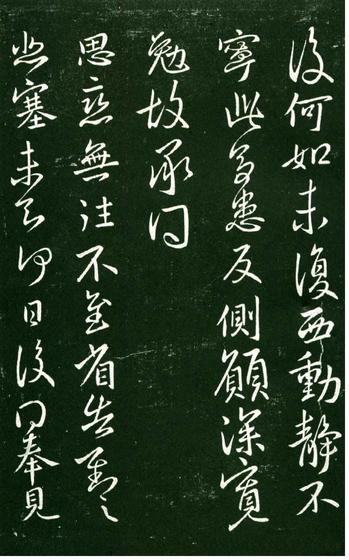 後何如未復西動靜不
寧此多患反側願深寬
勉故承問
思戀無往不至省告對之
悲塞未知何日復奉見